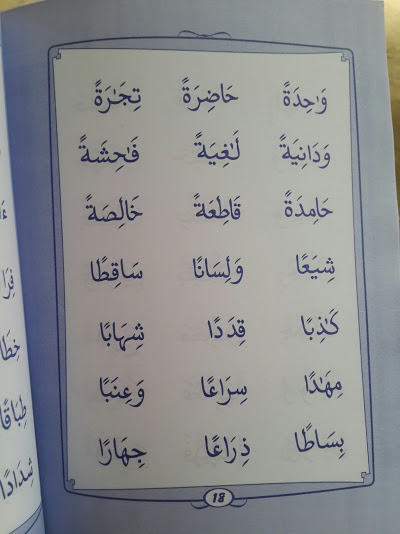 وَٰحِدَةً حَاضِرَةً تِجَٰرَةً
وَدَانِيَةً لَٰغِيَةً فَٰحِشَةً
حَامِدَةً قَاطِعَةً خَالِصَةً
شِيَعًا وَلِسَانًا سَاقِطًا
كَٰذِبًا قِدَدًا شِهَابًا
مِهَٰدًا سِرَاعًا وَعِنَبًا
بِسَاطًا ذِرَاعًا جِهَارًا
18
خِطَا
طِبَاقًا
شِدَادًا